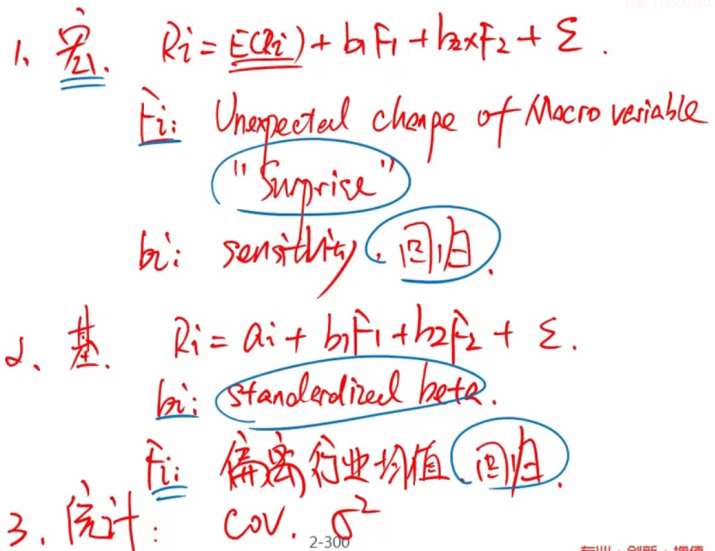 1、宏. Ri = E(Ri) + b1F1 + b2×F2 + Σ.
Fi: Unexpected change of Macro variable
"Surprise"
bi: sensitivity. 回归.
2、基. Ri = ai + b1F1 + b2F2 + Σ.
bi: standardized beta.
Fi: 偏离行业均值. 回归.
3、统计: cov. σ²
2-300
专业·创新·增值